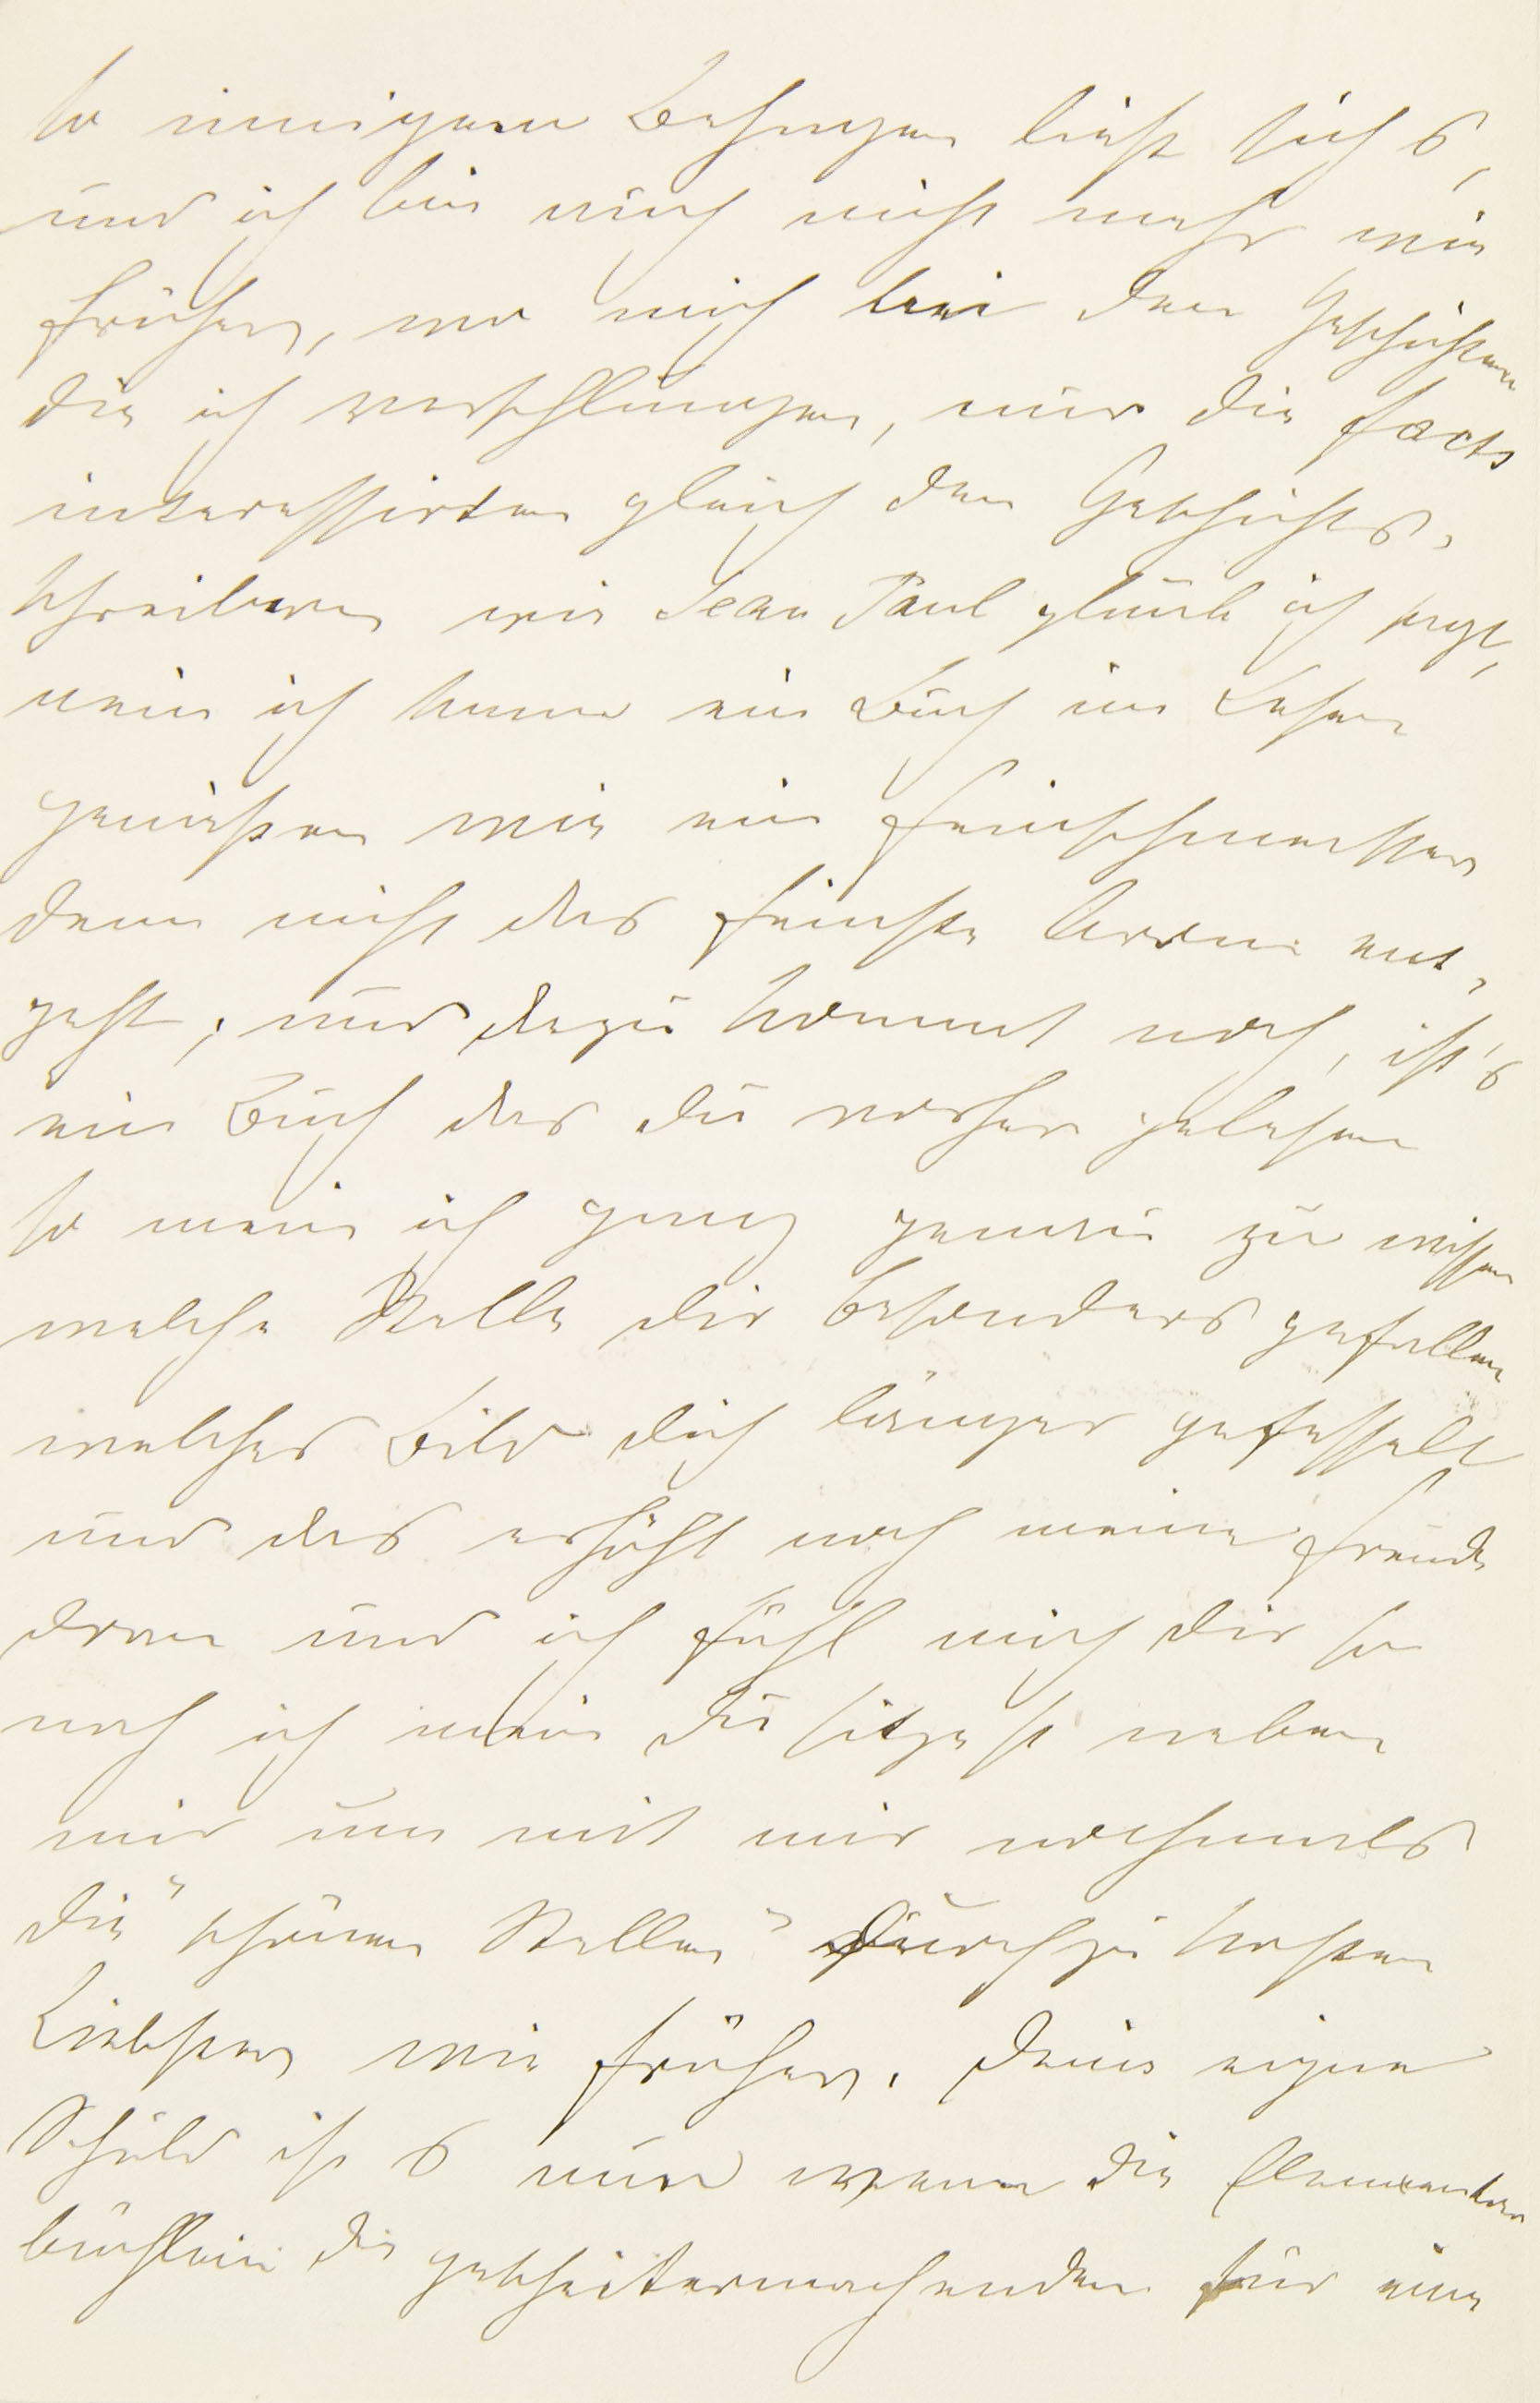 so innigem Behagen liest sich's,
und ich bin auch nicht mehr wie
früher, wo mich bei den Geschichten
die ich verschlungen, nur die facts
interessirten gleich den Geschichts-
schreibern wie Jean Paul glaub ich sagt,
nein ich kann ein Buch im Lesen
geniessen wie ein Feinschmecker
dem nicht das feinste Arom ent-
geht, und dazu kommt noch, ist's
ein Buch das du vorher gelesen
so mein ich ganz genau zu wissen
welche Stelle dir besonders gefallen
welches Bild dich länger gefesselt
und das erhöht noch meine Freude
dran und ich fühl mich dir so
nah ich mein du sitzest neben
mir um mit mir nochmals
die "schönen Stellen" durchzukosten
Liebster wie früher. Deine eigne
Schuld ist's nur wenn die Elementar
büchlein die gescheitermachenden für eine